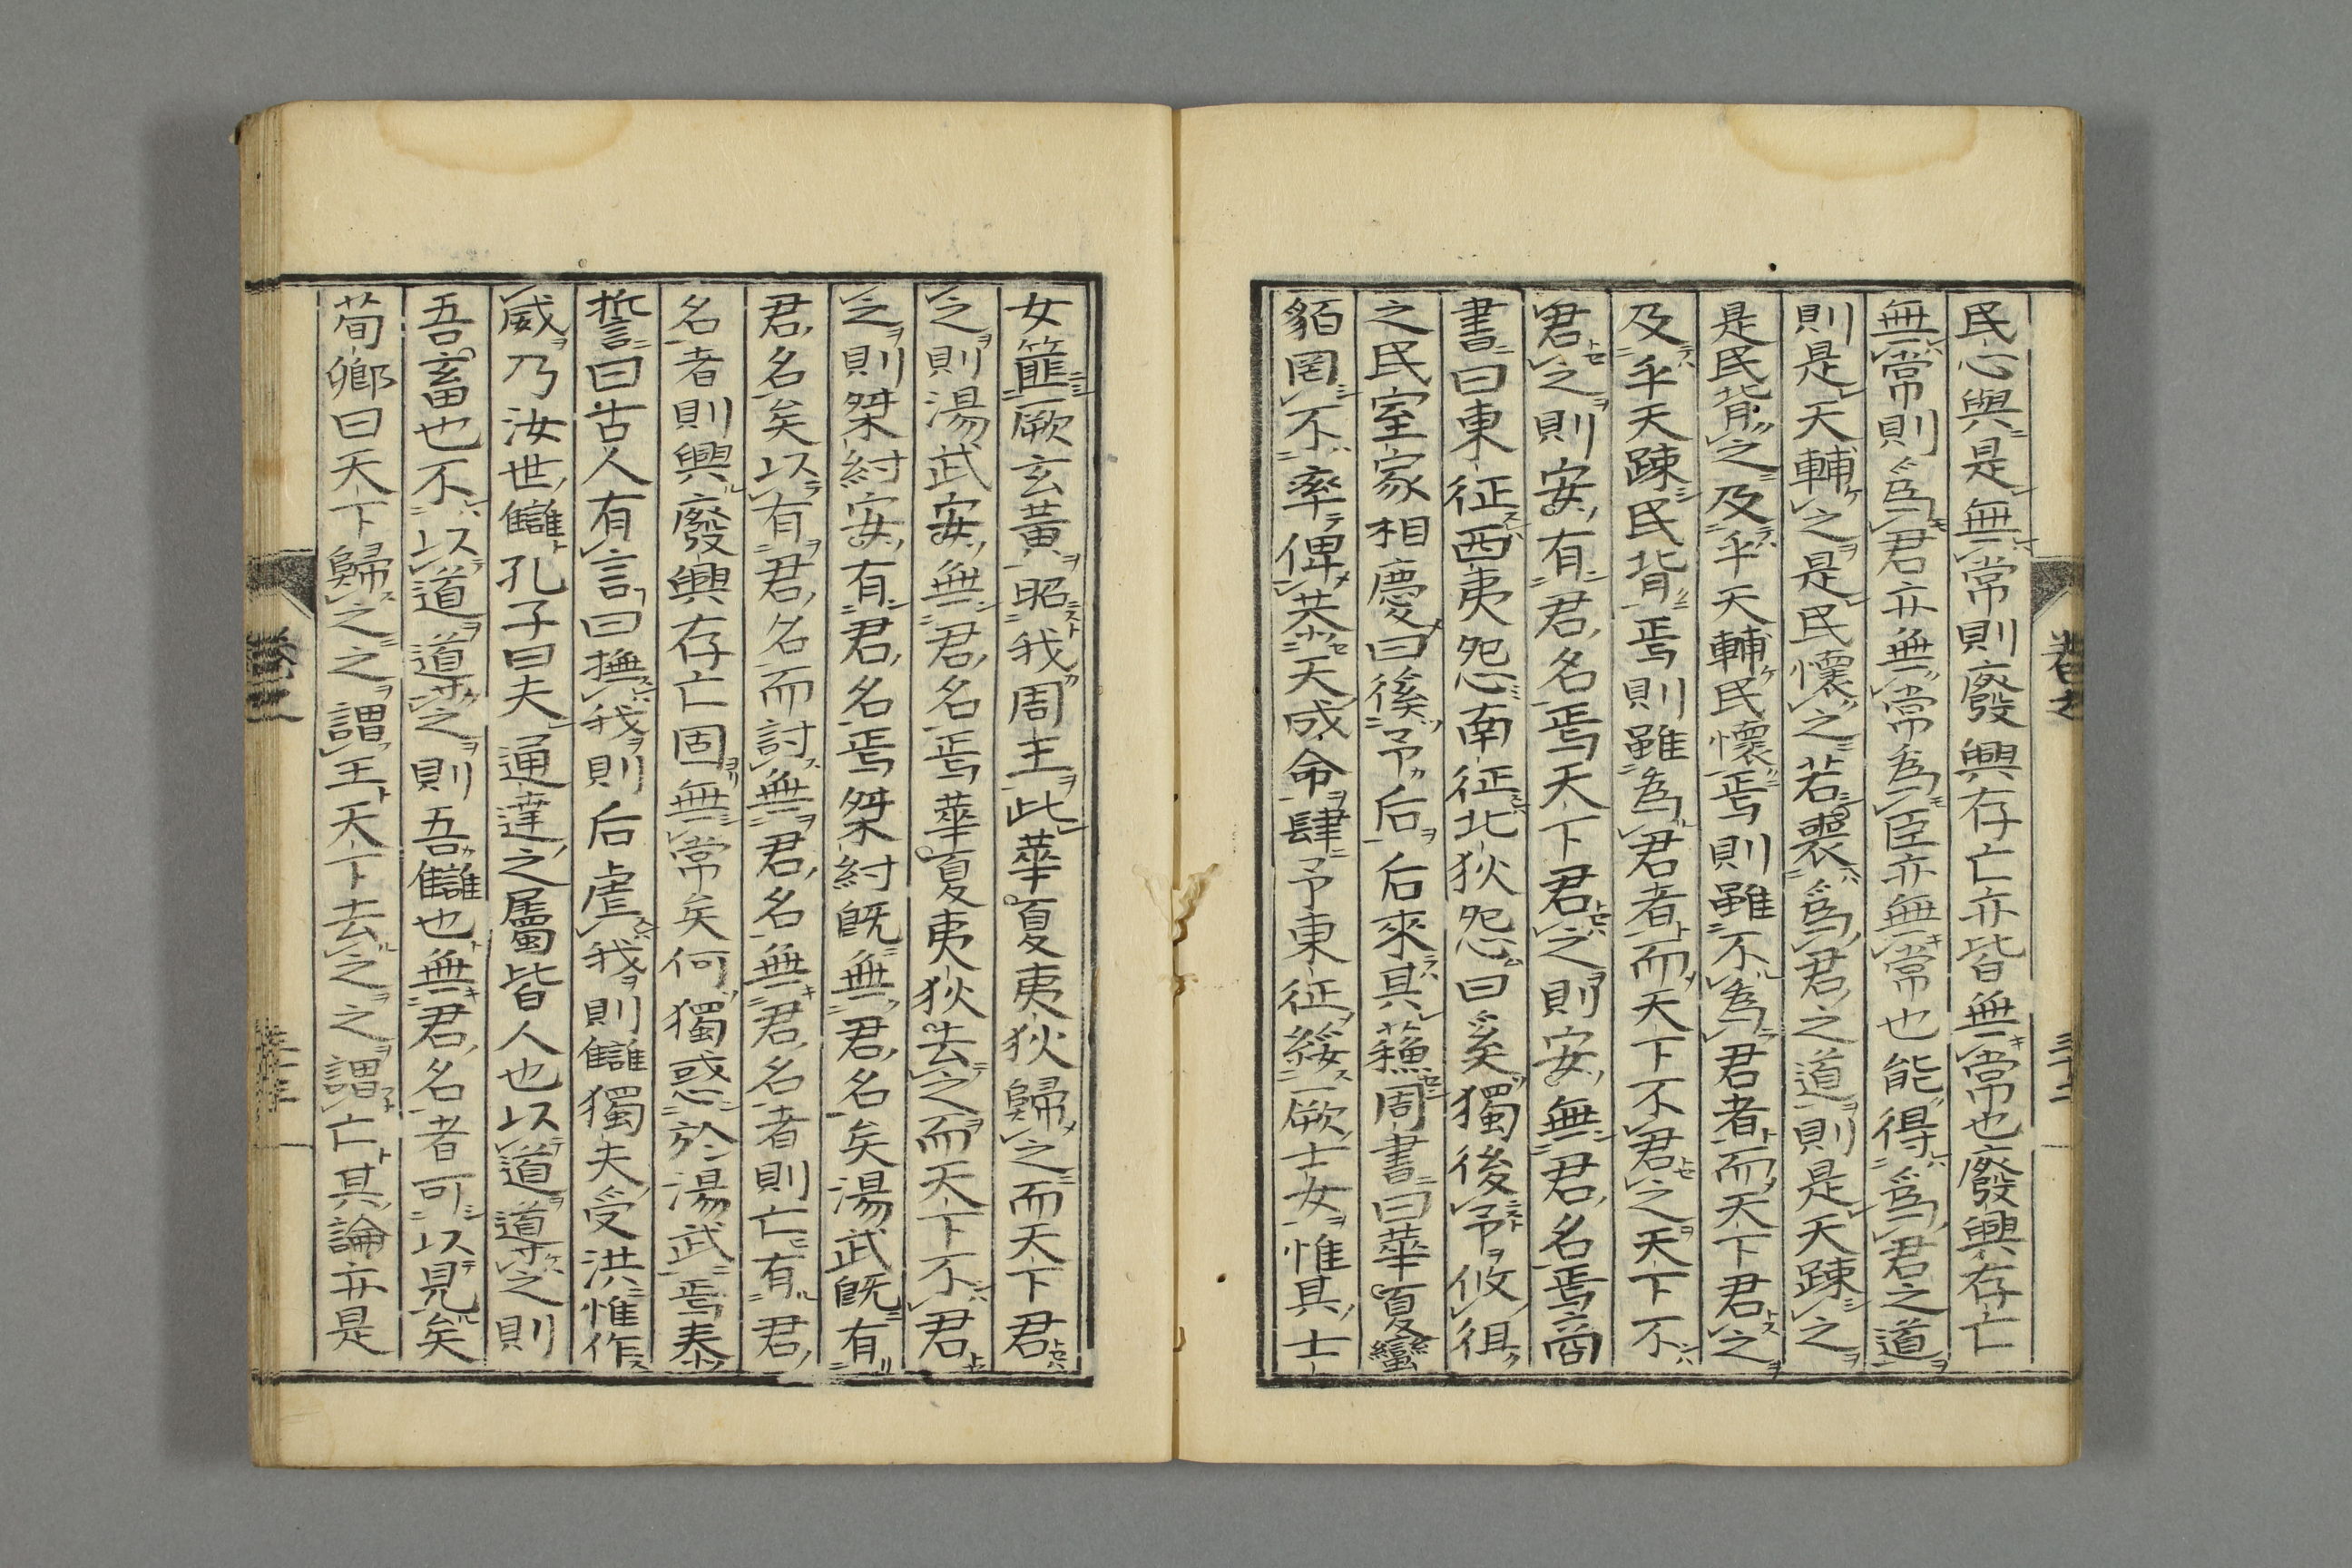 民心與是無常則廢興存亡亦皆無常也廢興存亡
無常則爲君亦無常爲臣亦無常也能得爲君之道
則是天輔之是民懷之若喪爲君之道則是天踈之
是民背之及乎天輔民懷焉則雖不爲君者而天下君之
及乎天踈民背焉則雖爲君者而天下不君之天下不
君之則安有君名焉天下君之則安無君名焉商
書曰東征西夷怨南征北狄怨曰奚獨後予攸徂
之民室家相慶曰徯予后后來其蘓周書曰華夏蠻
貊罔不率俾恭天成命肆予東征綏厥士女惟其士
女篚厥玄黃昭我周王此華夏夷狄歸之而天下君
之則湯武安無君名焉華夏夷狄去之而天下不君
之則桀紂安有君名焉桀紂旣無君名矣湯武旣有
君名矣以有君名而討無君名無君名者則亡有君
名者則興廢興存亡固無常矣何獨惑於湯武焉泰
誓曰古人有言曰撫我則后虐我則讎獨夫受洪惟作
威乃汝世讎孔子曰夫通達之屬皆人也以道導之則
吾畜也不以道導之則吾讎也無君名者可以見矣
荀卿曰天下歸之之謂王天下去之之謂亡其論亦是